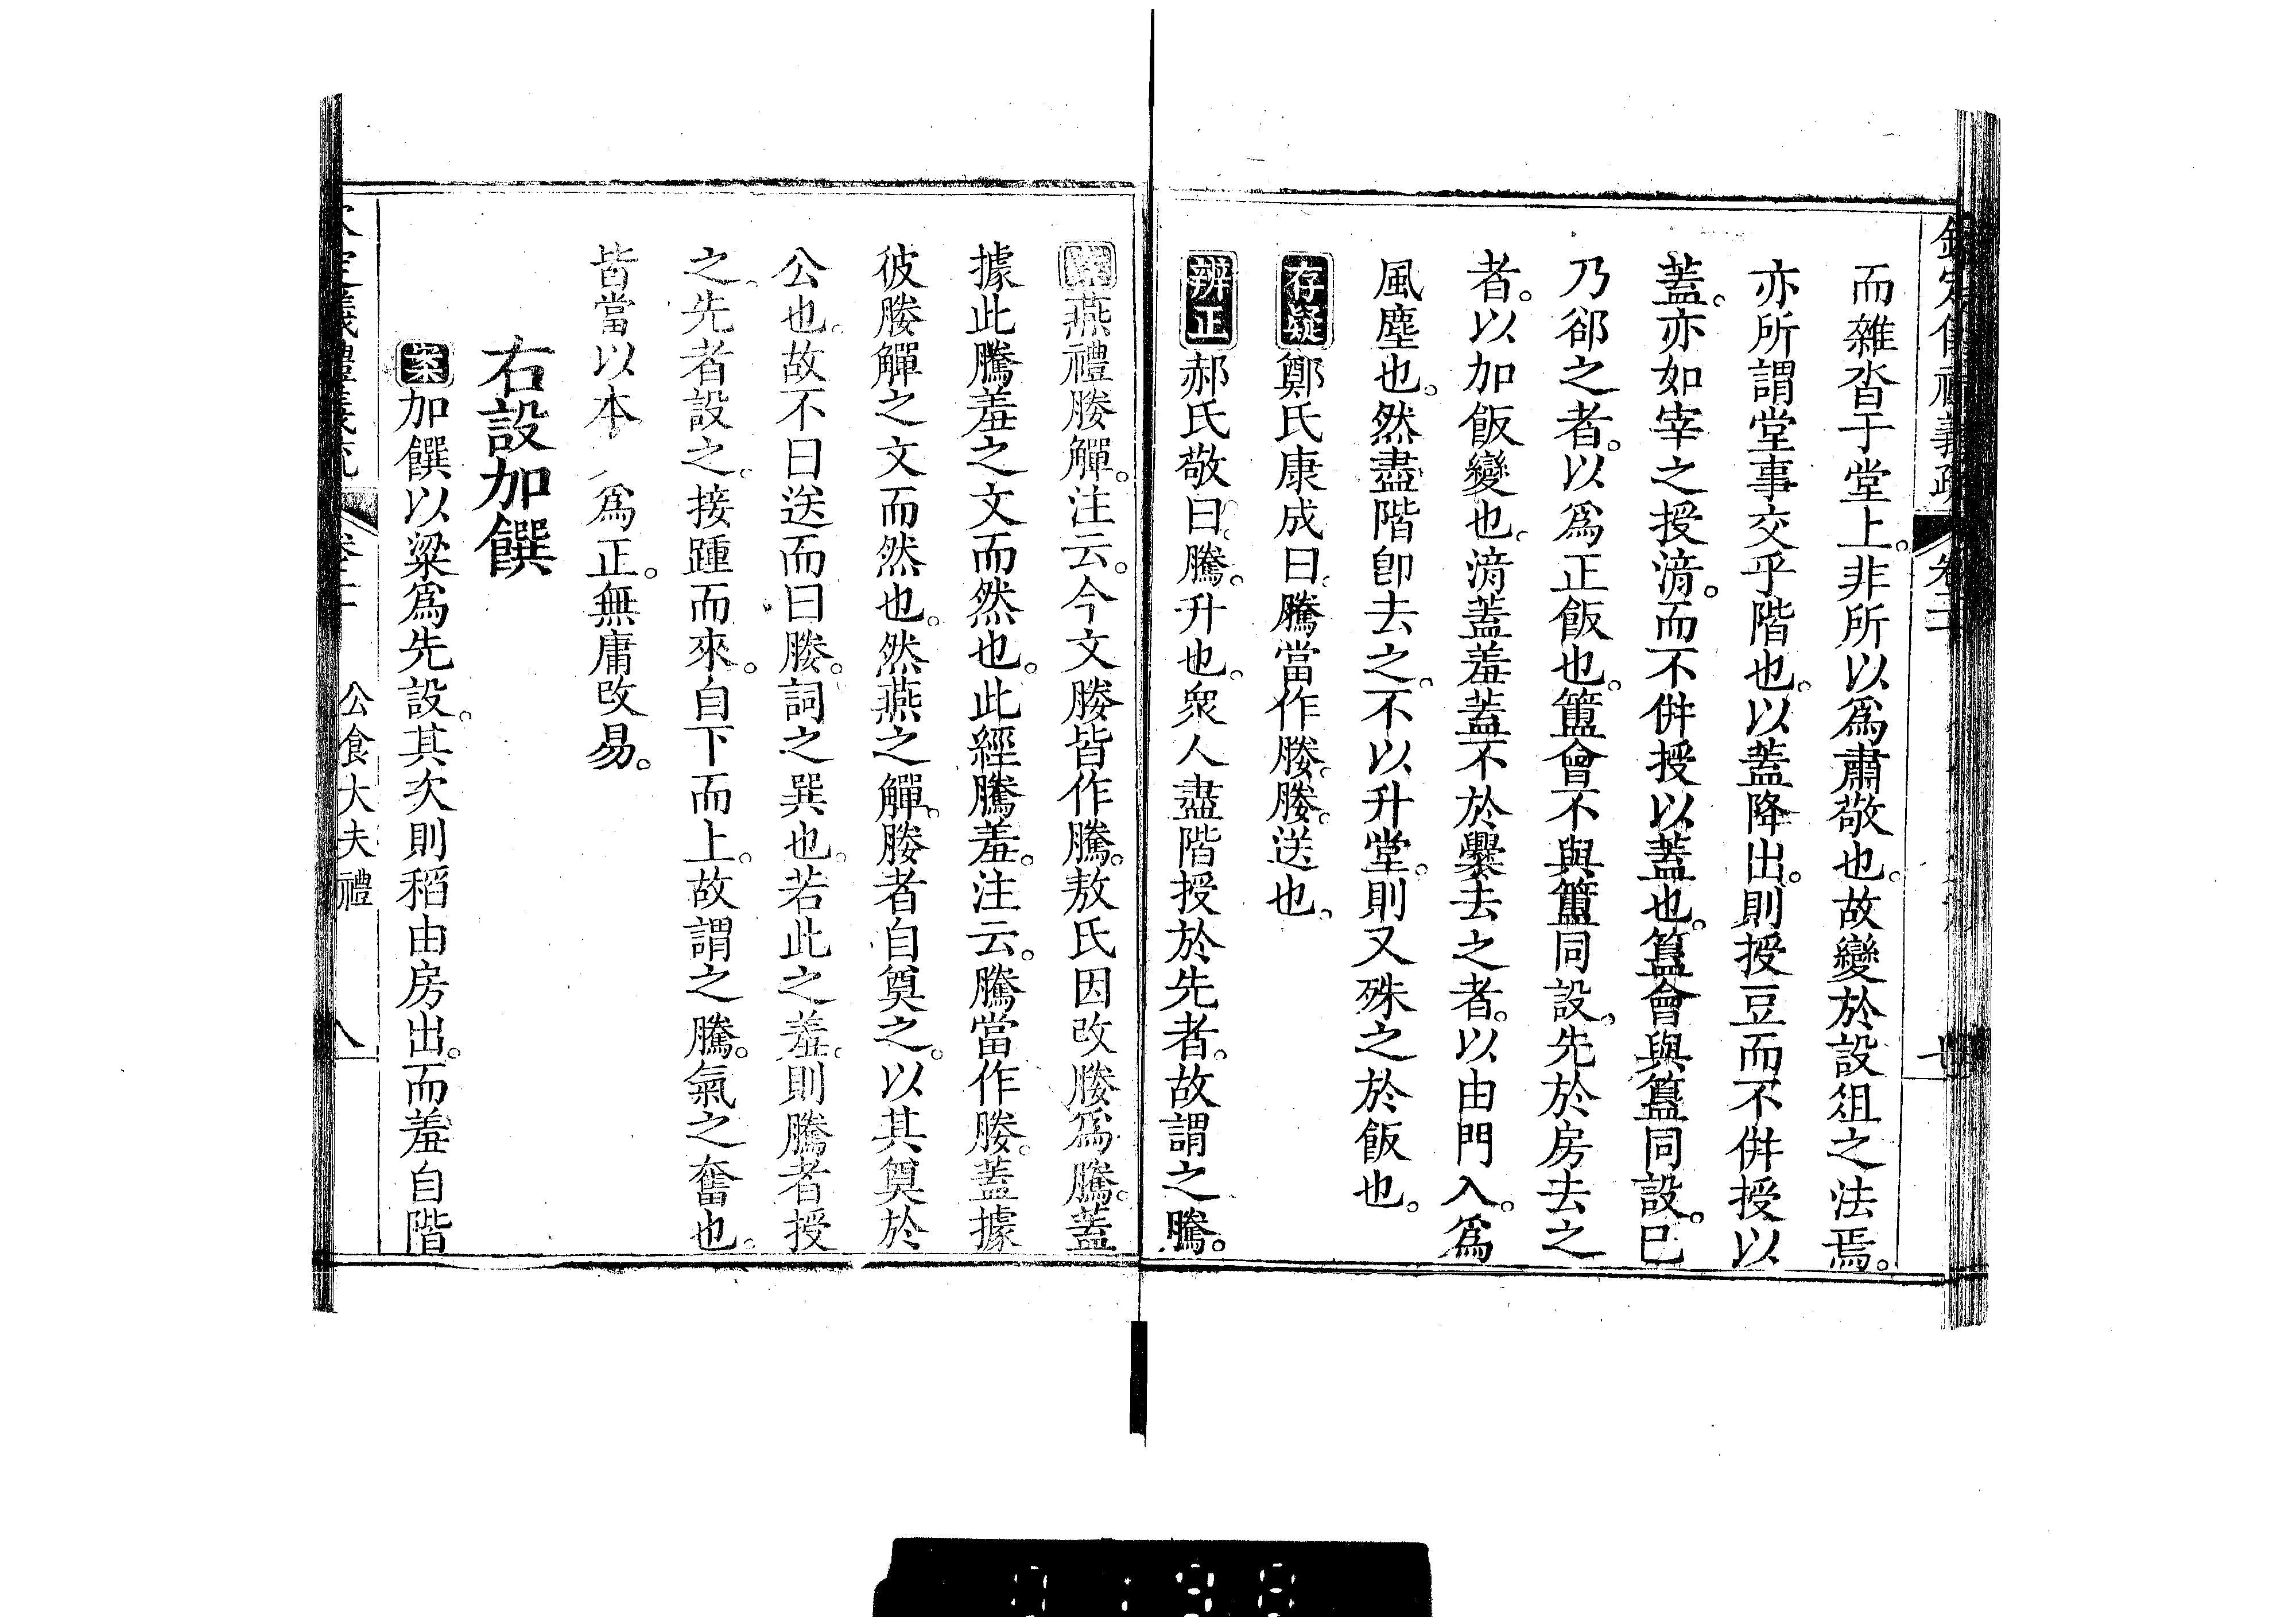 而雜沓于堂上。非所以爲肅敬也。故變於設俎之法焉。
亦所謂堂事交乎階也。以蓋降出。則授豆而不併授以
蓋。亦如宰之授湇。而不併授以蓋也。簋會與簋同設。已
乃郤之者。以爲正飯也。簠會不與簠同設。先於房去之
者。以加飯變也。湇蓋羞蓋不於爨去之者。以由門入。爲
風塵也。然盡階卽去之。不以升堂。則又殊之於飯也。
存疑鄭氏康成曰。騰當作媵。媵。送也。
辨正郝氏敬曰。騰。升也。衆人盡階授於先者。故謂之騰。
案燕禮媵觶。注云。今文媵皆作騰。敖氏因改媵爲騰。蓋
據此騰羞之文而然也。此經騰羞。注云。騰當作媵。蓋據
彼媵觶之文而然也。然燕之觶。媵者自奠之。以其奠於
公也。故不曰送而曰媵。詞之巽也。若此之羞。則騰者授
之。先者設之。接踵而來。自下而上。故謂之騰。氣之奮也。
皆當以本 爲正。無庸改易。
右設加饌
案加饌以粱爲先設。其次則稻由房出。而羞自階
公食大夫禮